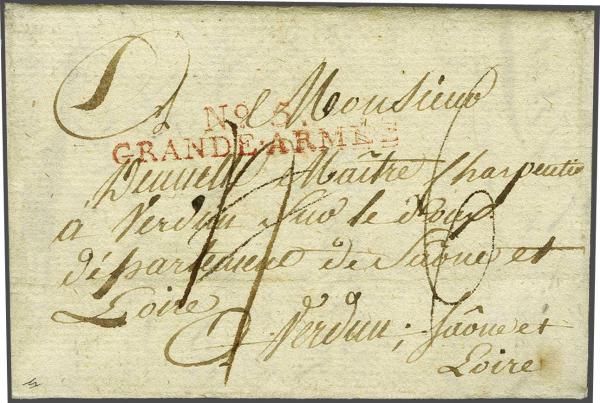 A Monsieur
No. 5.
GRANDE·ARMÉE
Maître Charpentier
à Verdun Sur le Doux
département de Saône et
Loire
a Verdun, Saône et
Loire